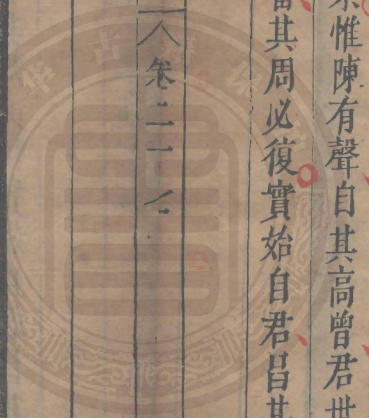 惟陳有聲自其高曾君世
其周必復實始自君昌其
人卷二